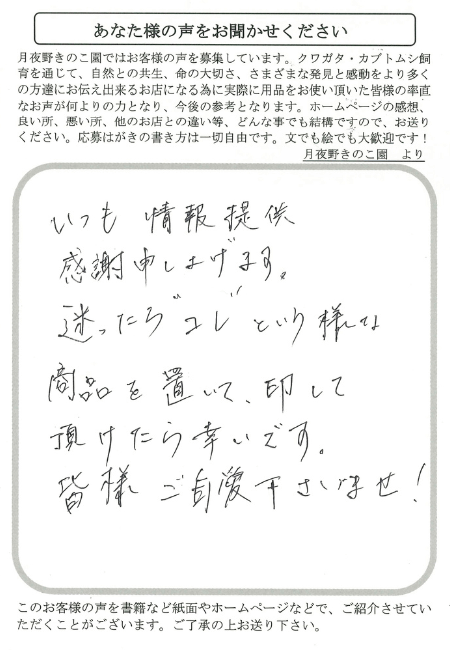 あなた様の声をお聞かせください
月夜野きのこ園ではお客様の声を募集しています。クワガタ・カブトムシ飼
育を通じて、自然との共生、命の大切さ、さまざまな発見と感動をより多く
の方達にお伝え出来るお店になる為に実際に用品をお使い頂いた皆様の率直
なお声が何よりの力となり、今後の参考となります。ホームページの感想、
良い所、悪い所、他のお店との違い等、どんな事でも結構ですので、お送り
ください。応募はがきの書き方は一切自由です。文でも絵でも大歓迎です！
月夜野きのこ園　より
いつも情報提供
感謝申し上げます。
迷ったら"コレ"という様な
商品を置いて、印して
頂けたら幸いです。
皆様ご自愛下さいませ！
このお客様の声を書籍など紙面やホームページなどで、ご紹介させてい
ただくことがございます。ご了承の上お送り下さい。